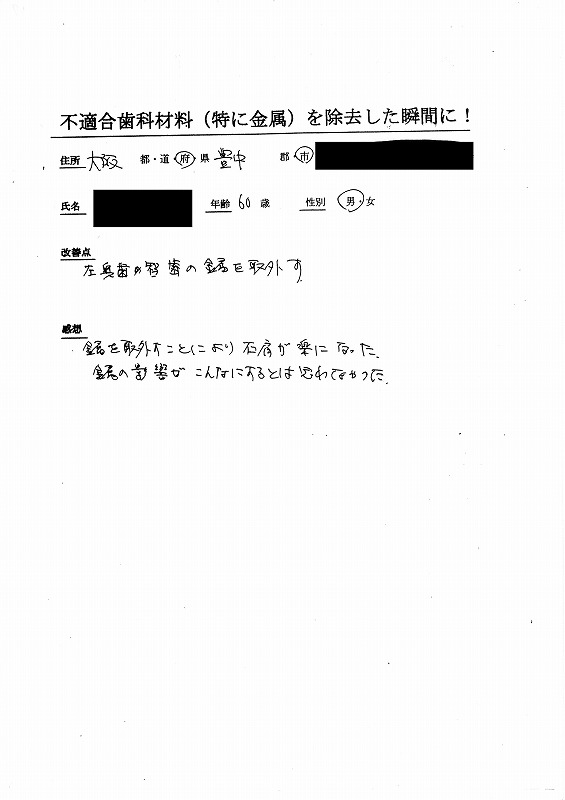 不適合歯科材料（特に金属）を除去した瞬間に！
住所 大阪 都・道・府・県 豊中 郡・市
氏名 年齢 60 歳 性別 男・女
改善点
左奥歯の智歯の金属を取外す
感想
金属を取外すことにより右肩が楽になった。
金属の影響がこんなにするとは思わなかった。